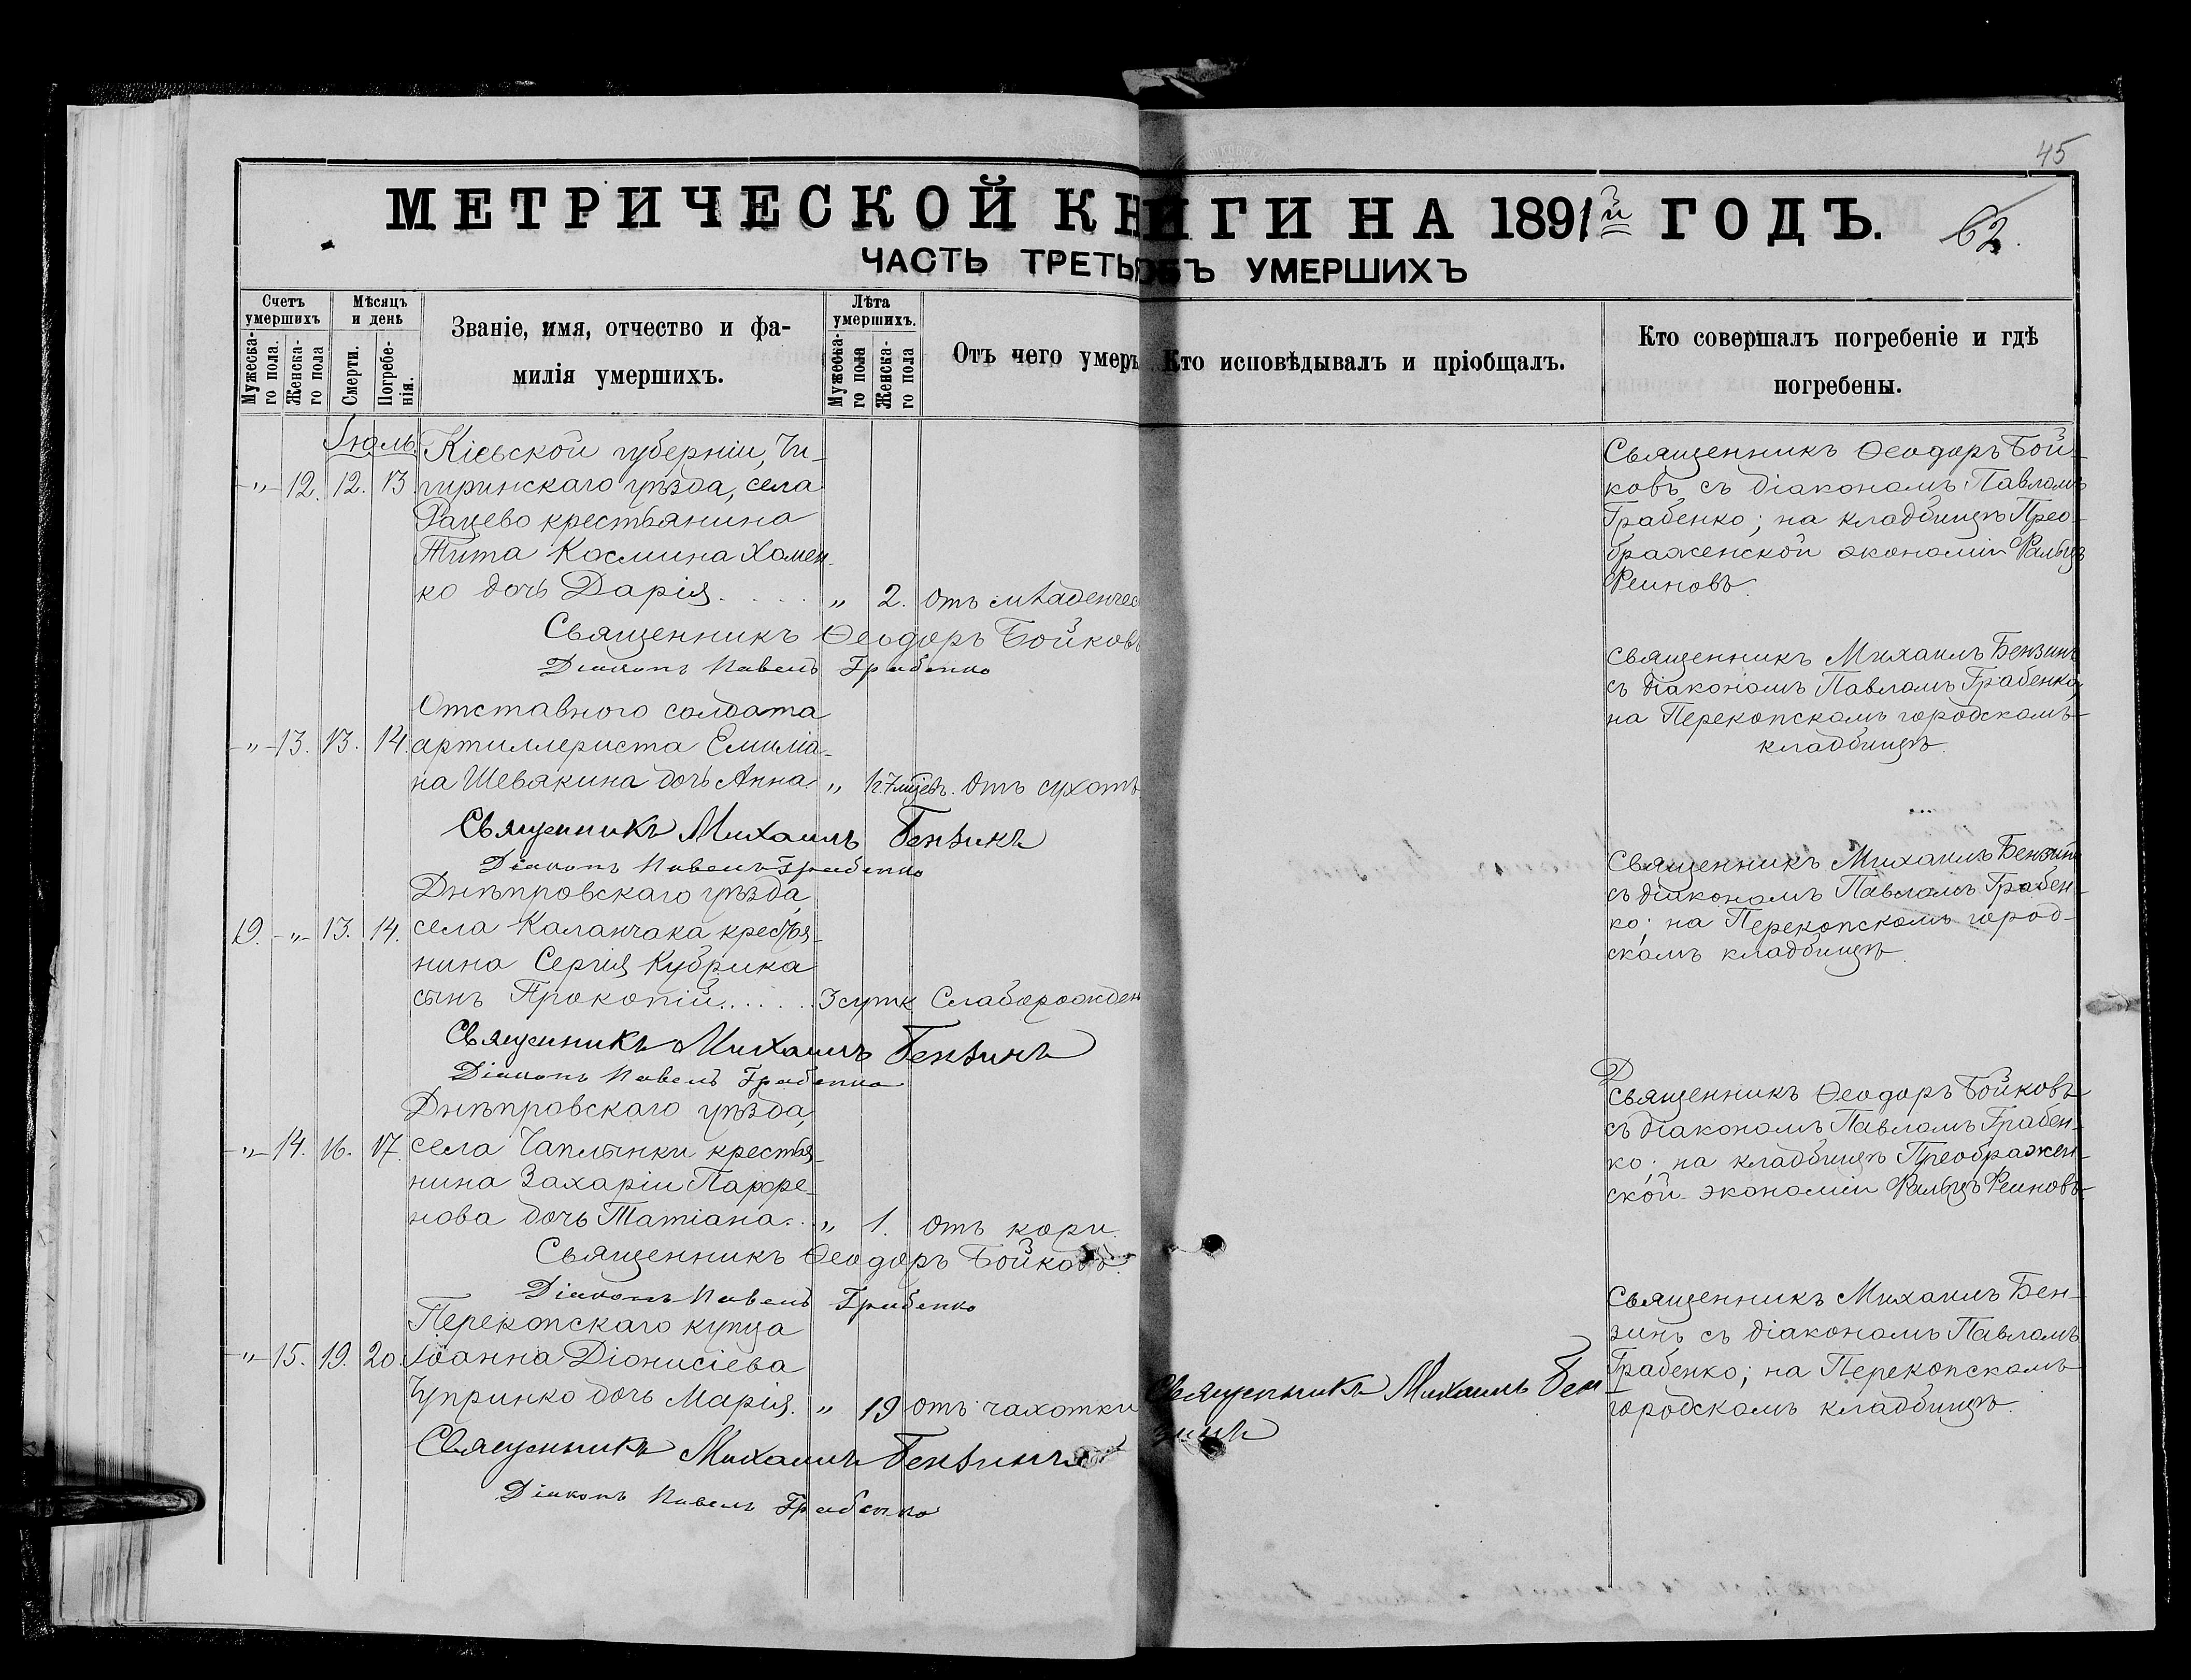 45
МЕТРИЧЕСКОЙ КНИГИ НА 1891й ГОДЪ.
62.
ЧАСТЬ ТРЕТЬЯ ОБЪ УМЕРШИХЪ
Счетъ умершихъ
Мужеска-го пола.
Женска-го пола
Мѣсяцъ и день
Смерти.
Погребе-нія.
Званіе, имя, отчество и фа-
милія умершихъ.
Лѣта умершихъ.
Мужеска-го пола
Женска-го пола
Отъ чего умеръ
Кто исповѣдывалъ и пріобщалъ.
Кто совершалъ погребеніе и гдѣ
погребены.
Іюль.
Кіевской губерніи, Чи-
-"- 12. 12. 13. гиринскаго уѣзда, села
Рацево крестьянина
Тита Космина Хомен-
ко дочь Дарія. . . . " 2. Отъ младенчес
Священникъ Ѳеодоръ Бойковъ
Діаконъ Павелъ Грабенко
Священникъ Ѳеодоръ Бой-
ковъ съ діакономъ Павломъ
Грабенко; на кладбищѣ Прео-
браженской экономіи Фальцъ
Феиновъ.
Отставного солдата
-"- 13. 13. 14. артиллериста Емиліа-
на Шевякина дочь Анна. " 1 г. 7 мцевъ. Отъ сухотъ
Священникъ Михаилъ Бензинъ
Діаконъ Павелъ Грабенко
Священникъ Михаилъ Бензинъ
съ діакономъ Павломъ Грабенко,
на Перекопскомъ городскомъ
кладбищѣ.
Днѣпровскаго уѣзда,
19. -"- 13. 14. села Каланчака крестья-
нина Сергія Кубрика
сынъ Прокопій. . . . . . 3 сутк Слаборожден
Священникъ Михаилъ Бензинъ
Діаконъ Павелъ Грабенко
Священникъ Михаилъ Бензинъ
съ діакономъ Павломъ Грабен-
ко; на Перекопскомъ город-
скомъ кладбищѣ.
Днѣпровскаго уѣзда,
-"- 14. 16. 17. села Чаплынки крестья-
нина Захаріи Парфе-
нова дочь Татіана. . . " 1. отъ кори.
Священникъ Ѳеодоръ Бойковъ.
Діаконъ Павелъ Грабенко
Священникъ Ѳеодоръ Бойковъ
съ діакономъ Павломъ Грабен-
ко; на кладбищѣ Преображен-
ской экономіи Фальцъ Феиновъ
Перекопскаго купца
-"- 15. 19. 20. Іоанна Діонисіева
Чупринко дочь Марія. " 19 отъ чахотки
Священникъ Михаилъ Бензинъ
Діаконъ Павелъ Грабенко
Священникъ Михаилъ Бен
зинъ
Священникъ Михаилъ Бен-
зинъ съ діакономъ Павломъ
Грабенко; на Перекопскомъ
городскомъ кладбищѣ.